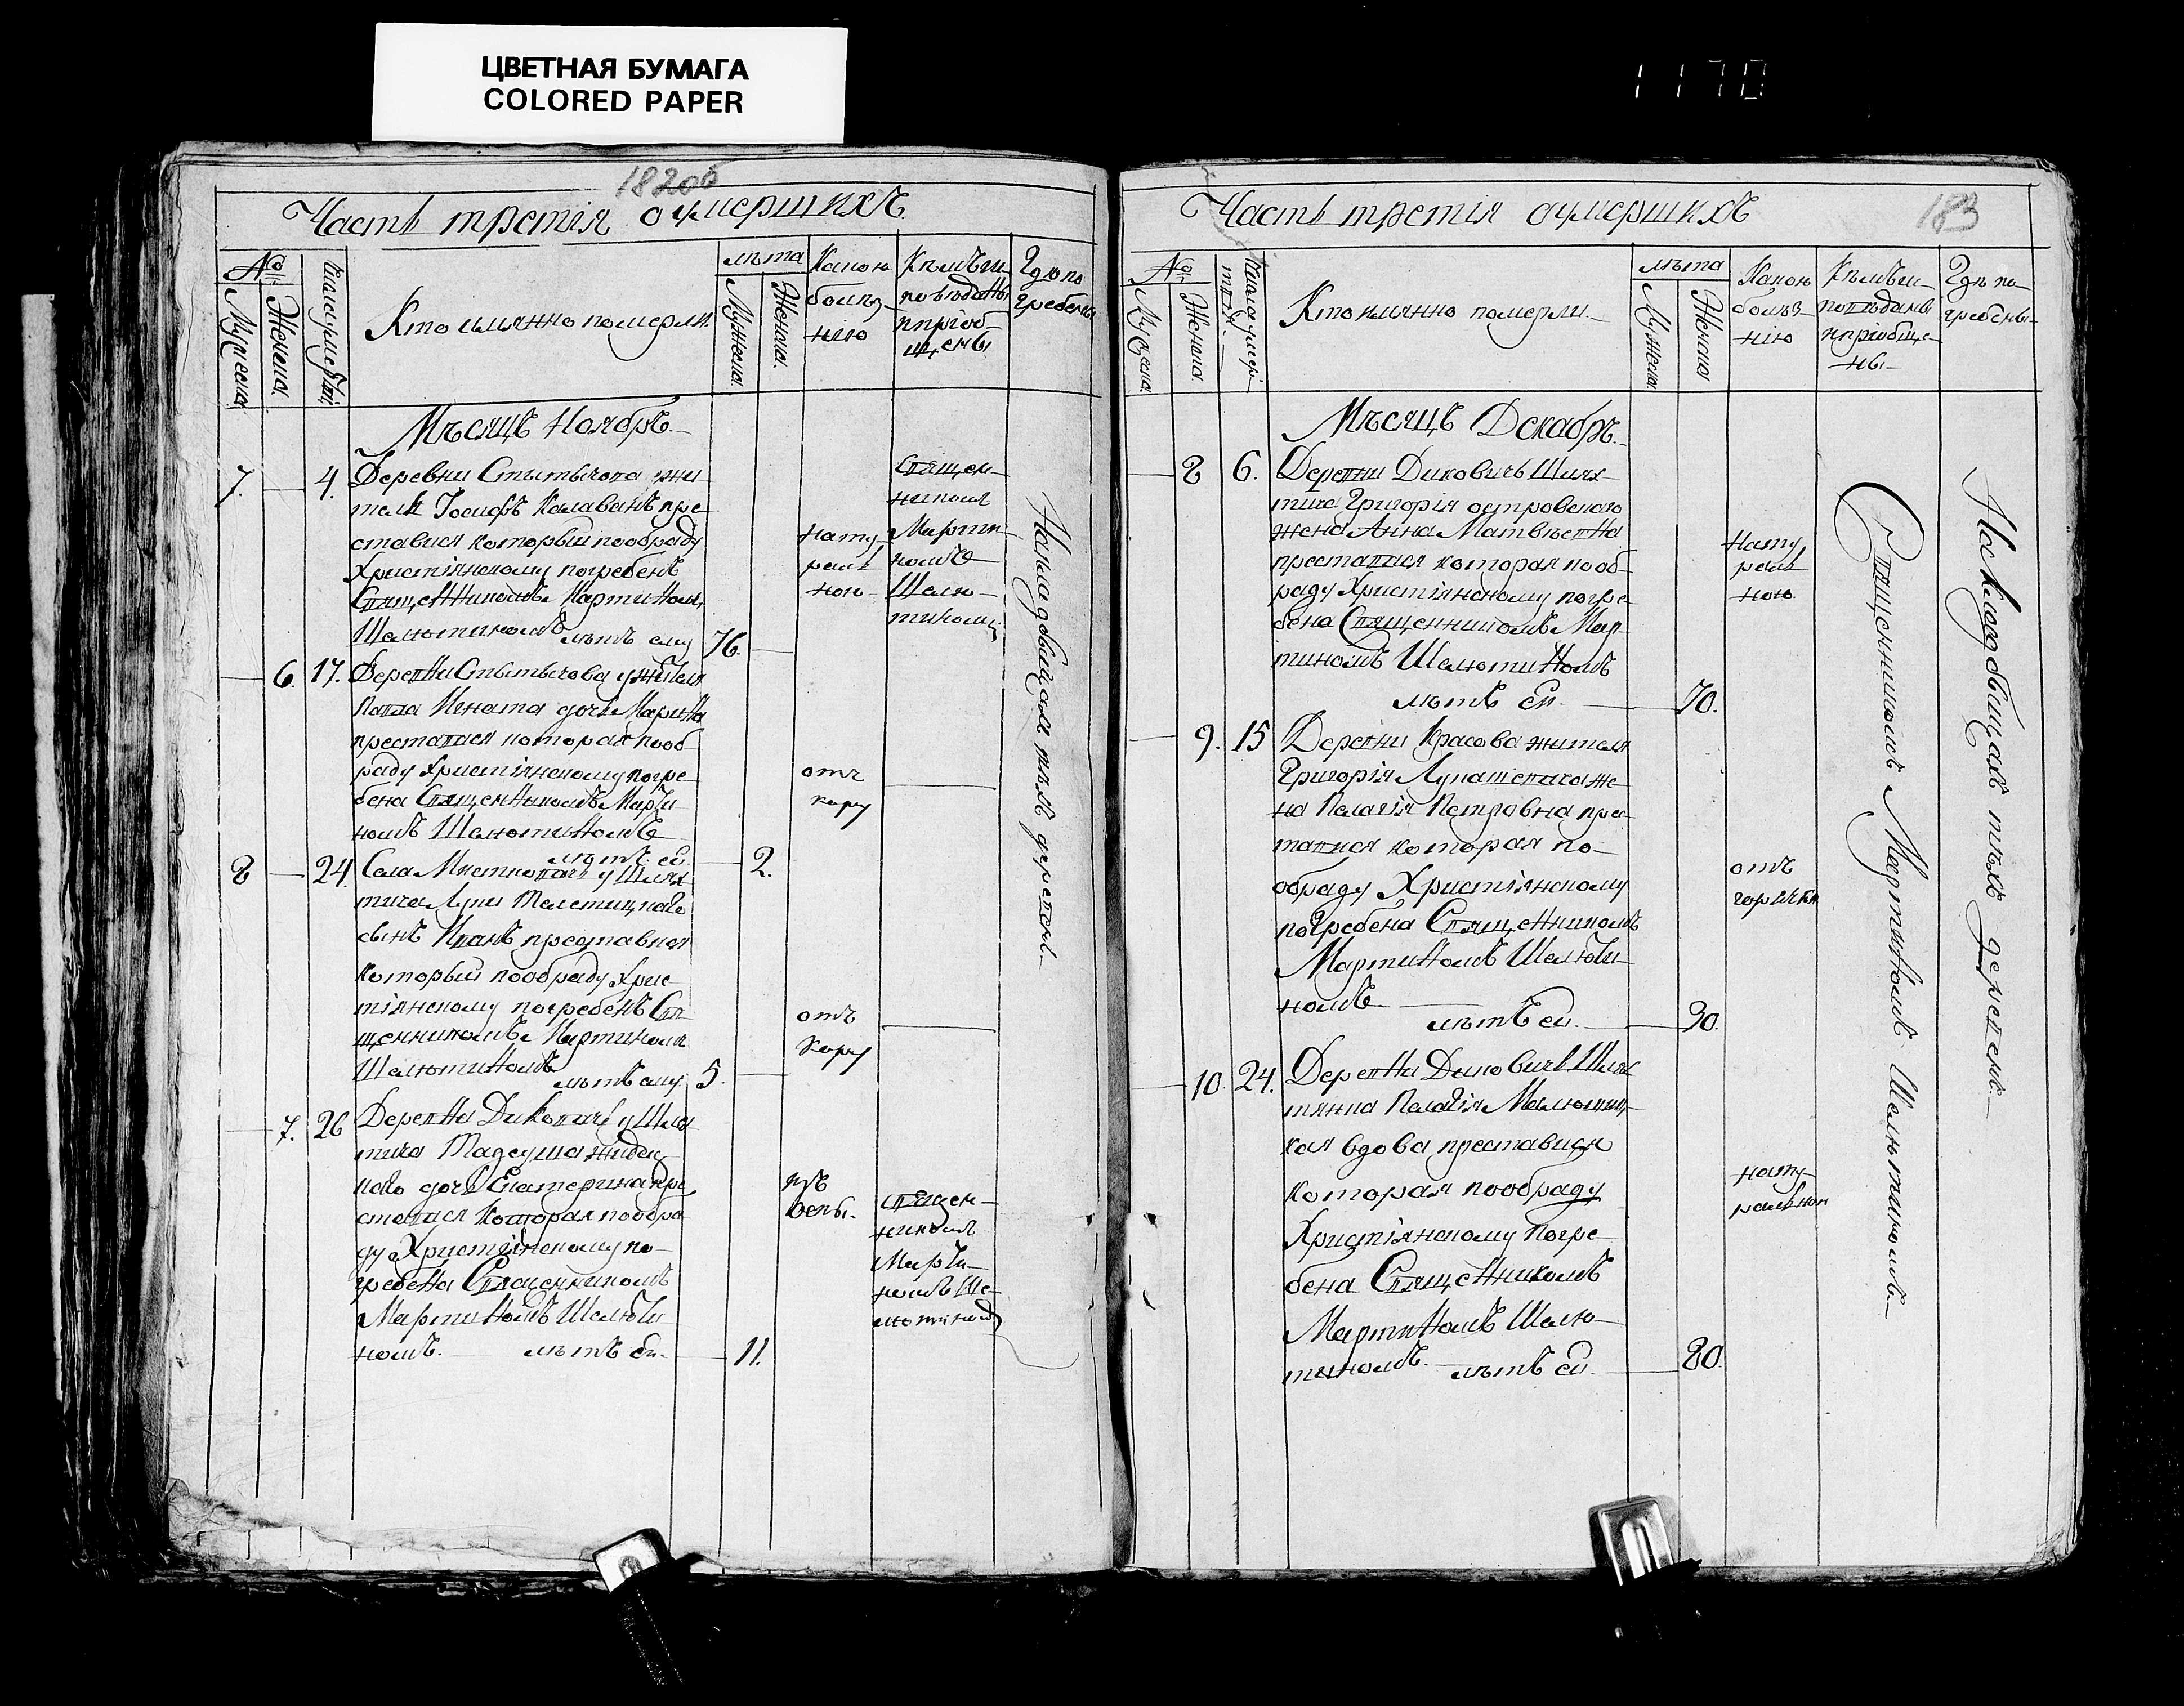 ЦВЕТНАЯ БУМАГА
COLORED PAPER
1170
182об
Часть третія оумершихъ
№
Мужеска
Женска
Кто имянно померли
лѣта
Мужеска
Женска
Какою
болѣз
нію
Кѣмъ и
повѣданы
и пріоб
щены
Гдѣ по
гребены
Мѣсяцъ Ноябрь
7. 4. Деревни жи
тель Іосифъ пре
ставися который по обряду
Христіянскому погребенъ
Священникомъ Мартиномъ
Шелютиномъ лѣтъ ему 76.
нату
раль
ною
Священ
никомъ
Марти
номъ
Шелю
тиномъ
6. 17. Деревни у жителя
Павла Игната дочь Марина
преставися которая по об
раду Христіянскому погре
бена Священникомъ Марти
номъ Шелютиномъ
лѣтъ ей 2.
отъ
кору
8 24. Села у Шлях
тича Луки
сынъ Иванъ преставися
который по обряду Хрис
тіянскому погребенъ Свя
щенникомъ Мартиномъ
Шелютиномъ
лѣтъ ему 5.
отъ
кору
7. 26 Деревни Диковичь у Шлях
тича Тадеуша
дочь Екатерина пре
ставися которая по обра
ду Христіянскому по
гребена Священникомъ
Мартиномъ Шелюти
номъ. лѣтъ ей. 11.
священ
никомъ
Марти
номъ Ше
лютиномъ
На кладбищахъ тѣхъ деревень
Часть третія оумершихъ
183
№
Мужеска
Женска
Кто имянно померли
лѣта
Мужеска
Женска
Какою
болѣз
нію
Кѣмъ и
повѣданы
и пріобще
ны
Гдѣ по
гребены
Мѣсяцъ Декабрь.
8 6. Деревни Диковичь Шлях
тича Григорія островского
жена Анна Матвѣевна
преставися которая по об
раду Христіянскому погре
бена Священникомъ Мар
тиномъ Шелютиномъ
лѣтъ ей. 70.
нату
раль
ною
9. 15 Деревни Красова жителя
Григорія Лукашевича же
на Пелагія Петровна прес
тавися которая по
обраду Христіянскому
погребена Священникомъ
Мартиномъ Шелюти
номъ
лѣтъ ей. 30.
отъ
горячки
10. 24. Деревни Диковичь Шлях
тянка Пелагія
кая вдова преставися
которая по обраду
Христіянскому погре
бена Священникомъ
Мартиномъ Шелю
тиномъ. лѣтъ ей 80.
нату
ральною
Священникомъ Мартиномъ Шелютиномъ
На кладбищахъ тѣхъ деревень